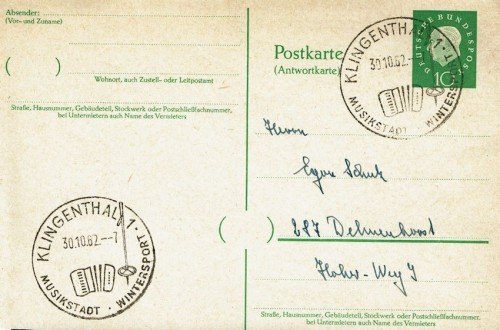 Absender:
(Vor- und Zuname)
( )
Wohnort, auch Zustell- oder Leitpostamt
Straße, Hausnummer, Gebäudeteil, Stockwerk oder Postschließfachnummer,
bei Untermietern auch Name des Vermieters
KLINGENTHAL 1
30.10.62.--7
MUSIKSTADT · WINTERSPORT
Postkarte
(Antwortkarte)
DEUTSCHE BUNDESPOST
10
KLINGENTHAL 1
30.10.62.--7
MUSIKSTADT WINTERSPORT
Herrn
Egon
( )
287 Delmenhorst
Straße, Hausnummer, Gebäudeteil, Stockwerk oder Postschließfachnummer,
bei Untermietern auch Name des Vermieters